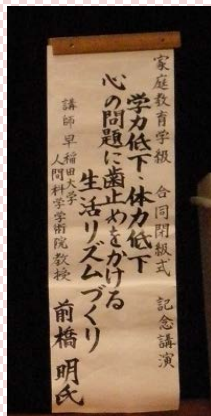 家庭教育学級 合同閉級式 記念講演
学力低下・体力低下
心の問題に歯止めをかける
生活リズムづくり
講師 早稲田大学
人間科学学術院教授
前橋 明氏